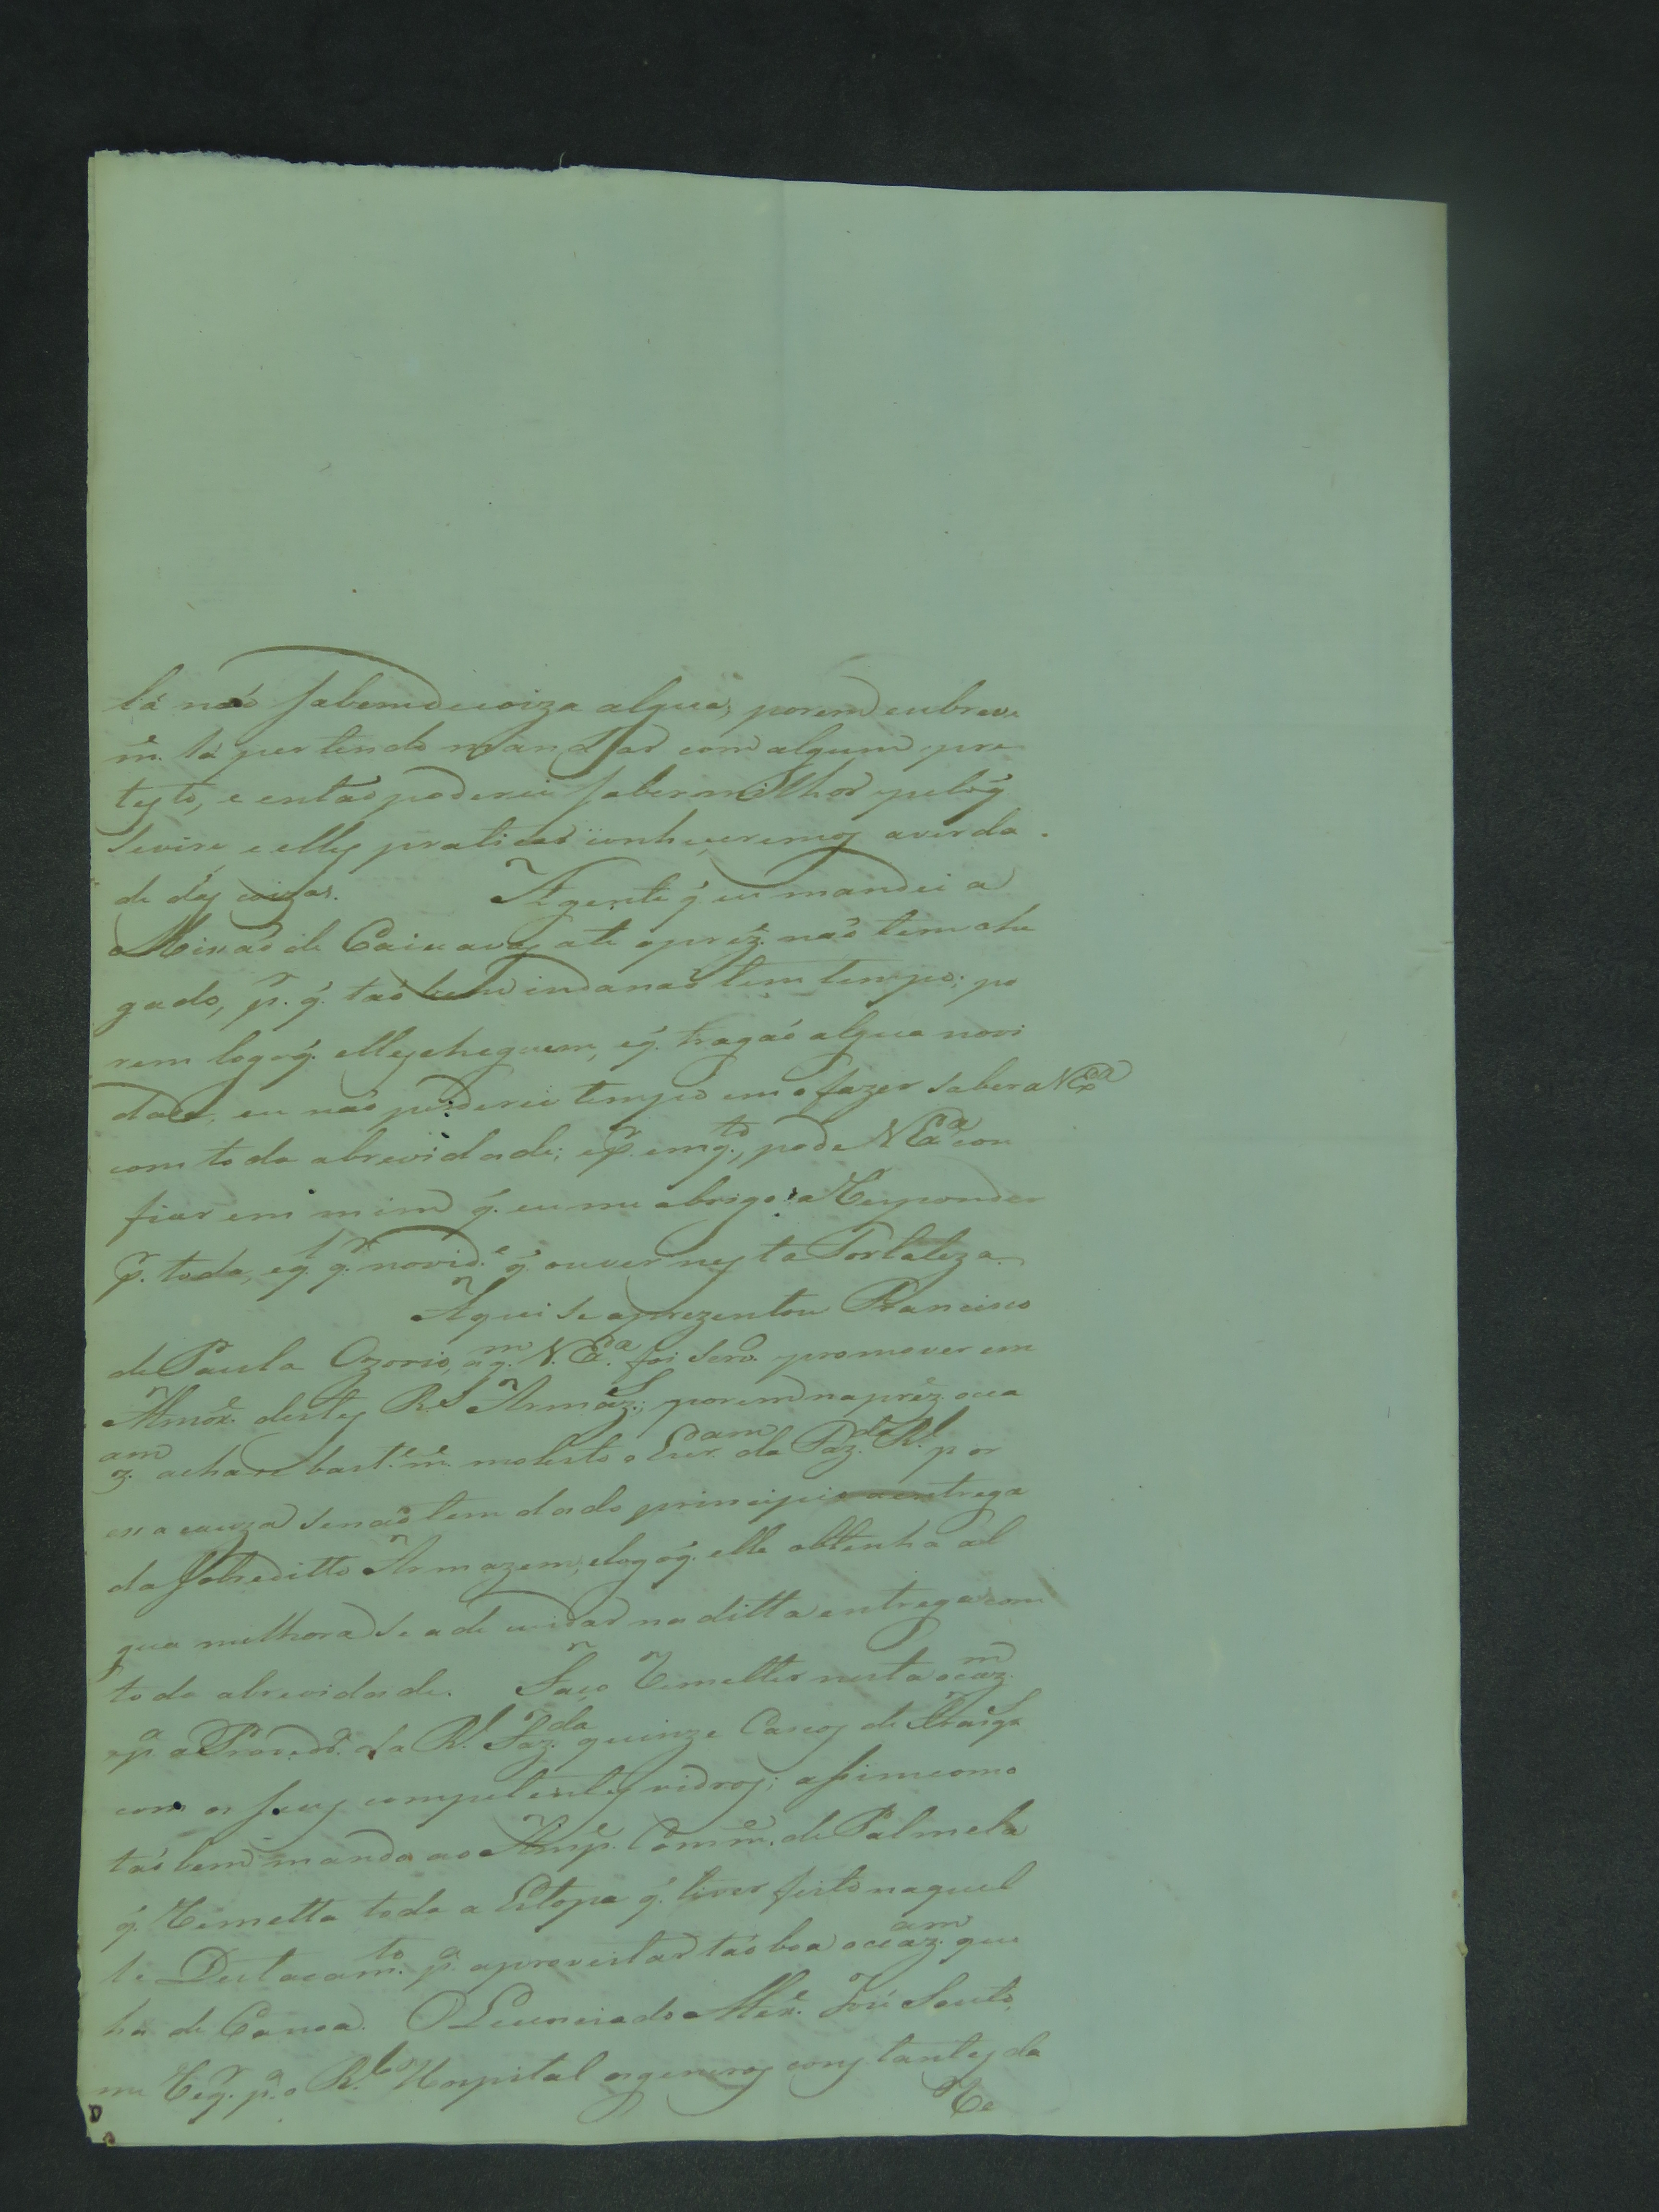 lá naõ sabem de coiza algũa, porem eu breve
m.e lá pertendo mandar com algum pre
testo, e entaõ poderei saber milhor pelo q.
se vire, e elles praticar conheceremos a verda
de das coizas. A gente q. eu mandei a
Missaõ de Caiuavas ate o prez. naõ tem che
gado, p.r q. taõ bem inda naõ tem tempo; po
rem logo q. elles cheguem, e q. tragaõ algua novi
dade, eu naõ perderei tempo em o fazer saber a V Ex.ca
com toda abrevidade; e p.r em q.to, pode V Ex.a con
fiar em mim q. eu me obrigo a Responder
p.r toda, e q.l q.r novid.e q. ouver nesta Fortaleza.
Aqui se aprezentou Francisco
de Paula Ozorio, a q.m V. Ex.ca foi serv.o promover em
Almox.e destes R.s Armaz.s; porem na prez. oca
z.am achase bast.e m.e molesto o Escr.am da Faz.da R.l por
essa cauza se naõ tem dado principio a entrega
do sobreditto Armazem, e logo q. elle obtenha al
gua melhora se a de cuidar na ditta entrega com
toda abrevidade. Faço Remetter nesta ocaz.m
e p.a a Proved.r da R.l Faz.da quinze Cascos de
com os seus competentes vidros; assim como
taõ bem mando ao Insp. Com.e de Palmela
q. Remetta toda a Estopa q. tiver feito naquel
le Destacam.to p.a aproveitar taõ boa ocaz.am que
ha de Canoa. O Licenciado Alex.e José Souto,
me Req.r p.a o R.l Hospital os generos constantes da
Re